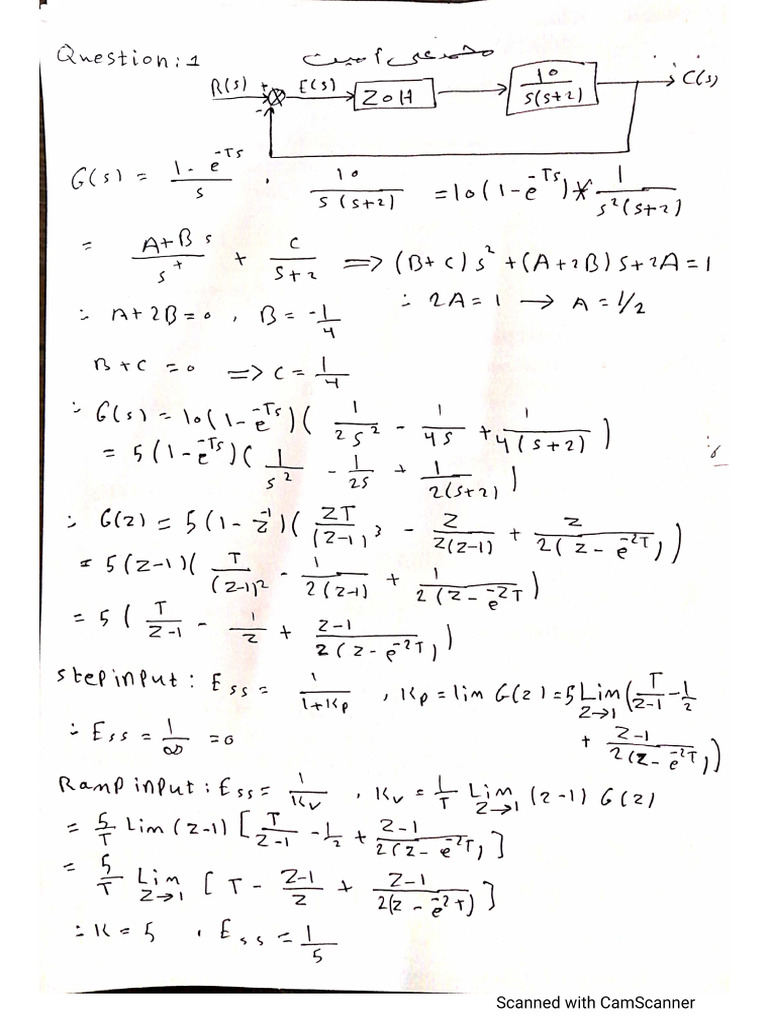 Question: 1
محمد علی امیت
R(s) + E(s) ZOH 10/s(s+2) C(s)
-
G(s) = (1 - e^-Ts)/s . 10/(s(s+2)) = 10(1-e^-Ts) * 1/(s²(s+2))
= (A+Bs)/s^+ + C/(s+2) => (B+C)s² + (A+2B)s + 2A = 1
∴ 2A = 1 → A = 1/2
∴ A+2B = 0, B = -1/4
B+C = 0 => C = 1/4
∴ G(s) = 10(1-e^-Ts)(1/(2s²) - 1/(4s) + 1/(4(s+2)))
= 5(1-e^-Ts)(1/s² - 1/(2s) + 1/(2(s+2)))
∴ G(z) = 5(1-z^-1)(ZT/(Z-1)^3 - Z/(2(Z-1)) + Z/(2(Z-e^-2T)))
= 5(Z-1)(T/(Z-1)² - 1/(2(Z-1)) + 1/(2(Z-e^-2T)))
= 5(T/(Z-1) - 1/2 + (Z-1)/(2(Z-e^-2T)))
Step input: Ess = 1/(1+Kp), Kp = lim G(z) = 5 Lim Z→1 (T/(Z-1) - 1/2
∴ Ess = 1/∞ = 0
+ (Z-1)/(2(Z-e^-2T)))
Ramp input: Ess = 1/Kv, Kv = 1/T Lim Z→1 (z-1) G(z)
= 5/T Lim (z-1) [T/(Z-1) - 1/2 + (Z-1)/(2(Z-e^-2T))]
= 5/T Lim Z→1 [T - (Z-1)/2 + (Z-1)/(2(Z-e^-2T))]
∴ K = 5, Ess = 1/5
Scanned with CamScanner